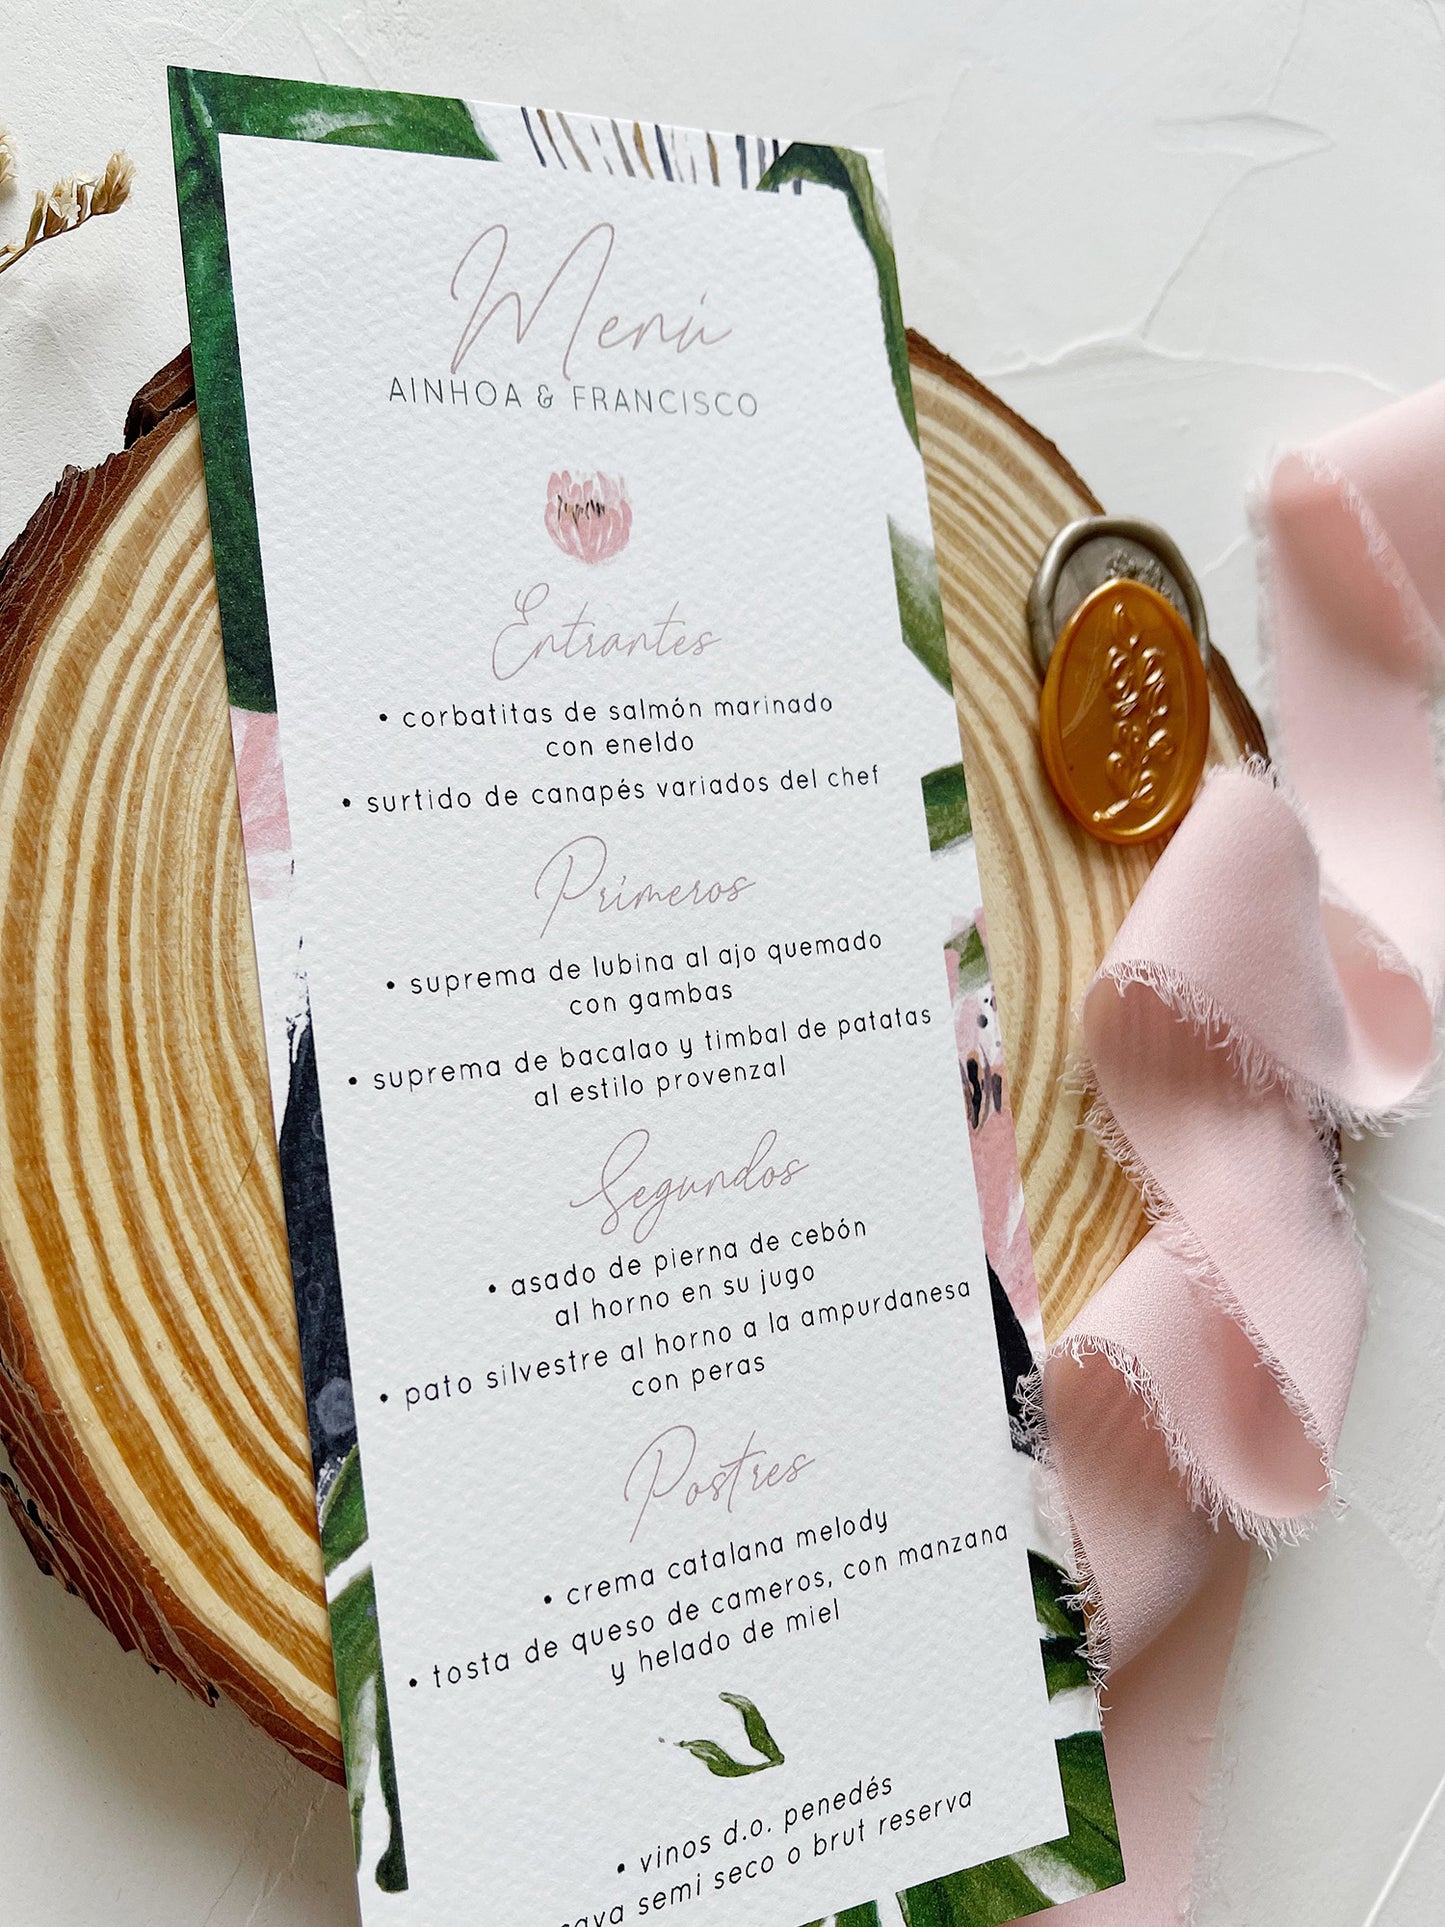 Menú
AINHOA & FRANCISCO
Entrantes
• corbatitas de salmón marinado
con eneldo
• surtido de canapés variados del chef
Primeros
• suprema de lubina al ajo quemado
con gambas
• suprema de bacalao y timbal de patatas
al estilo provenzal
Segundos
• asado de pierna de cebón
al horno en su jugo
• pato silvestre al horno a la ampurdanesa
con peras
Postres
• crema catalana melody
• tosta de queso de cameros, con manzana
y helado de miel
• vinos d.o. penedés
semi seco o brut reserva